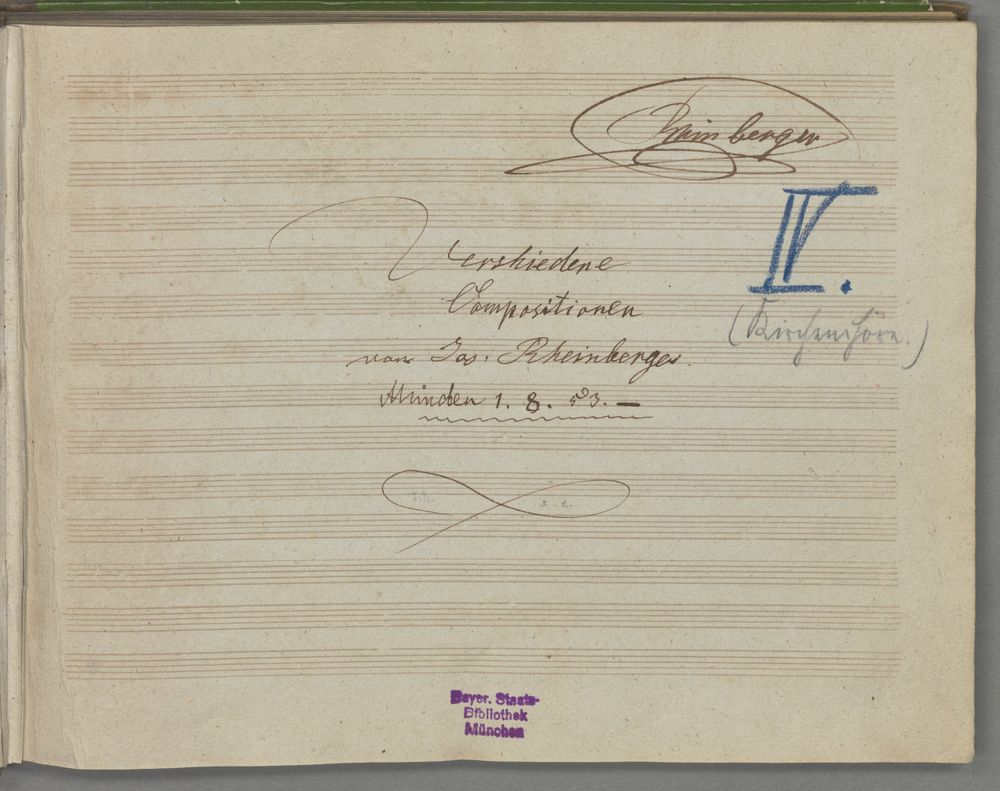 Rheinberger
IV.
Verschiedene
Compositionen
(Kirchenchöre.)
von Jos. Rheinberger.
München 1. 8. 53. —
Bayer. Staats-
Bibliothek
München